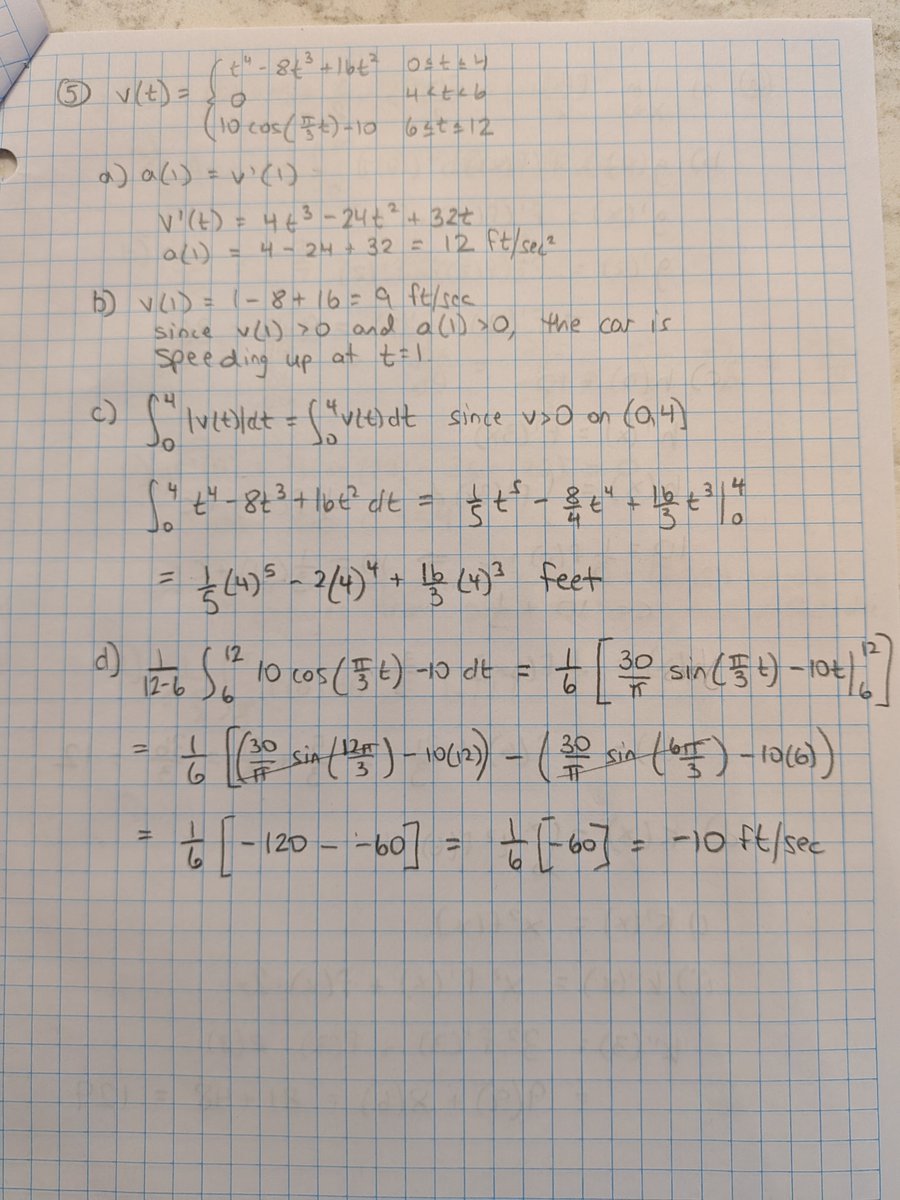 ⑤ v(t) = { t⁴ - 8t³ + 16t²   0 ≤ t ≤ 4
0   4 < t < 6
10 cos(π/3 t) - 10   6 ≤ t ≤ 12
a) a(1) = v'(1)
v'(t) = 4t³ - 24t² + 32t
a(1) = 4 - 24 + 32 = 12 ft/sec²
b) v(1) = 1 - 8 + 16 = 9 ft/sec
since v(1) > 0 and a(1) > 0, the car is
speeding up at t=1
c) ∫₀⁴ |v(t)|dt = ∫₀⁴ v(t)dt since v>0 on (0,4]
∫₀⁴ t⁴ - 8t³ + 16t² dt = 1/5 t⁵ - 8/4 t⁴ + 16/3 t³ |₀⁴
= 1/5 (4)⁵ - 2(4)⁴ + 16/3 (4)³ feet
d) 1/(12-6) ∫₆¹² 10 cos(π/3 t) - 10 dt = 1/6 [ 30/π sin(π/3 t) - 10t |₆¹² ]
= 1/6 [(30/π sin(12π/3) - 10(12)) - (30/π sin(6π/3) - 10(6))
= 1/6 [-120 - -60] = 1/6 [-60] = -10 ft/sec